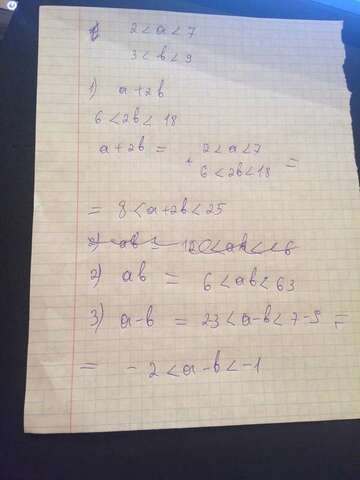 2 < a < 7
3 < b < 9
1) a+2b
6 < 2b < 18
a+2b = + 2 < a < 7
6 < 2b < 18 =
= 8 < a+2b < 25
2) ab =
2) ab = 6 < ab < 63
3) a-b = 23 < a-b < 7-9 =
= -2 < a-b < -1